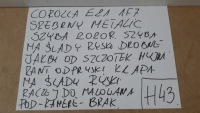 COROLLA E21 1F7
SREBRNY METALIC
SZYBA ROZOR. SZYBA
MA ŚLADY RYSKI DROBNE
JAKBY OD SZCZOTEK MYJNI
RANT ODPRYSKI KLAPA
MA ŚLADY RYSKI
RACZEJ DO MALOWANA
POD-KAMERĘ-BRAK
H43